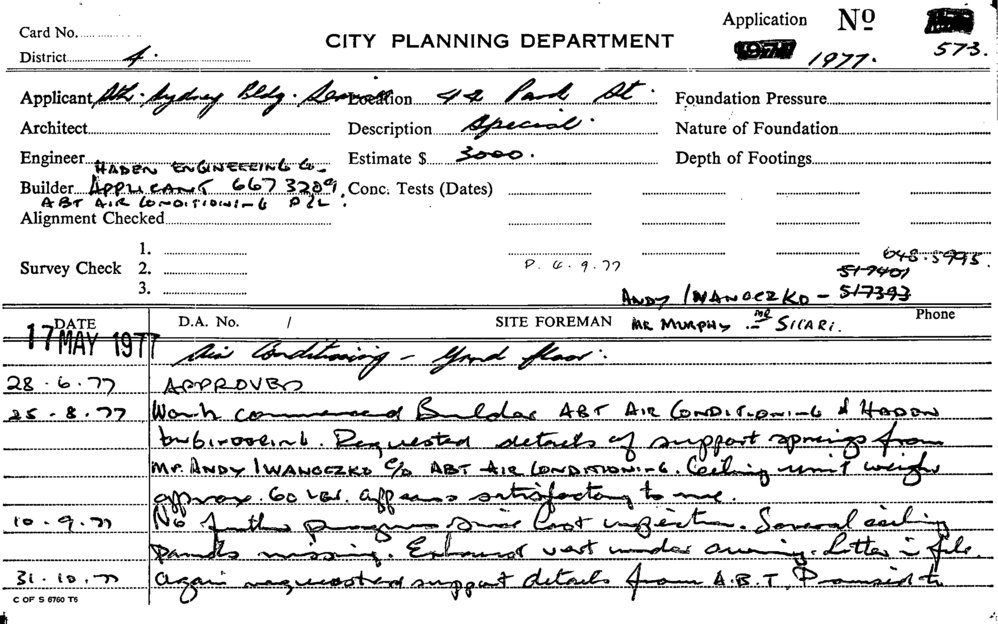 Card No.
CITY PLANNING DEPARTMENT
Application No
District 4.
1977. 573.
Applicant Sth. Sydney Bldg. Location 44 Park St.
Foundation Pressure
Architect Description Special.
Nature of Foundation
Engineer HADEN ENGINEERING Co. Estimate $ 3000.
Depth of Footings
Builder APPLICANT 667 3289. Conc. Tests (Dates)
ABT AIR CONDITIONING P/L.
Alignment Checked
1.
Survey Check 2. P. 6.9.77 648.5995.
517401
3.
ANDY IWANOCZKO - 517393
DATE D.A. No. / SITE FOREMAN MR MURPHY. MR SICARI. Phone
17 MAY 1977 Air Conditioning - Grnd floor.
28.6.77 APPROVED
25.8.77 Work commenced Builder ABT AIR CONDITIONING & HADEN
ENGINEERING. Requested details of support springs from
MR. ANDY IWANOCZKO C/O ABT AIR CONDITIONING. Ceiling unit weighs
approx. 60 lbs. appears satisfactory to me.
10.9.77 No further progress since last inspection. Several ceiling
panels missing. Exhaust vent under awning. Letter in file
31.10.77 Again requested support details from A.B.T. Promised to
C OF S 6760 T6